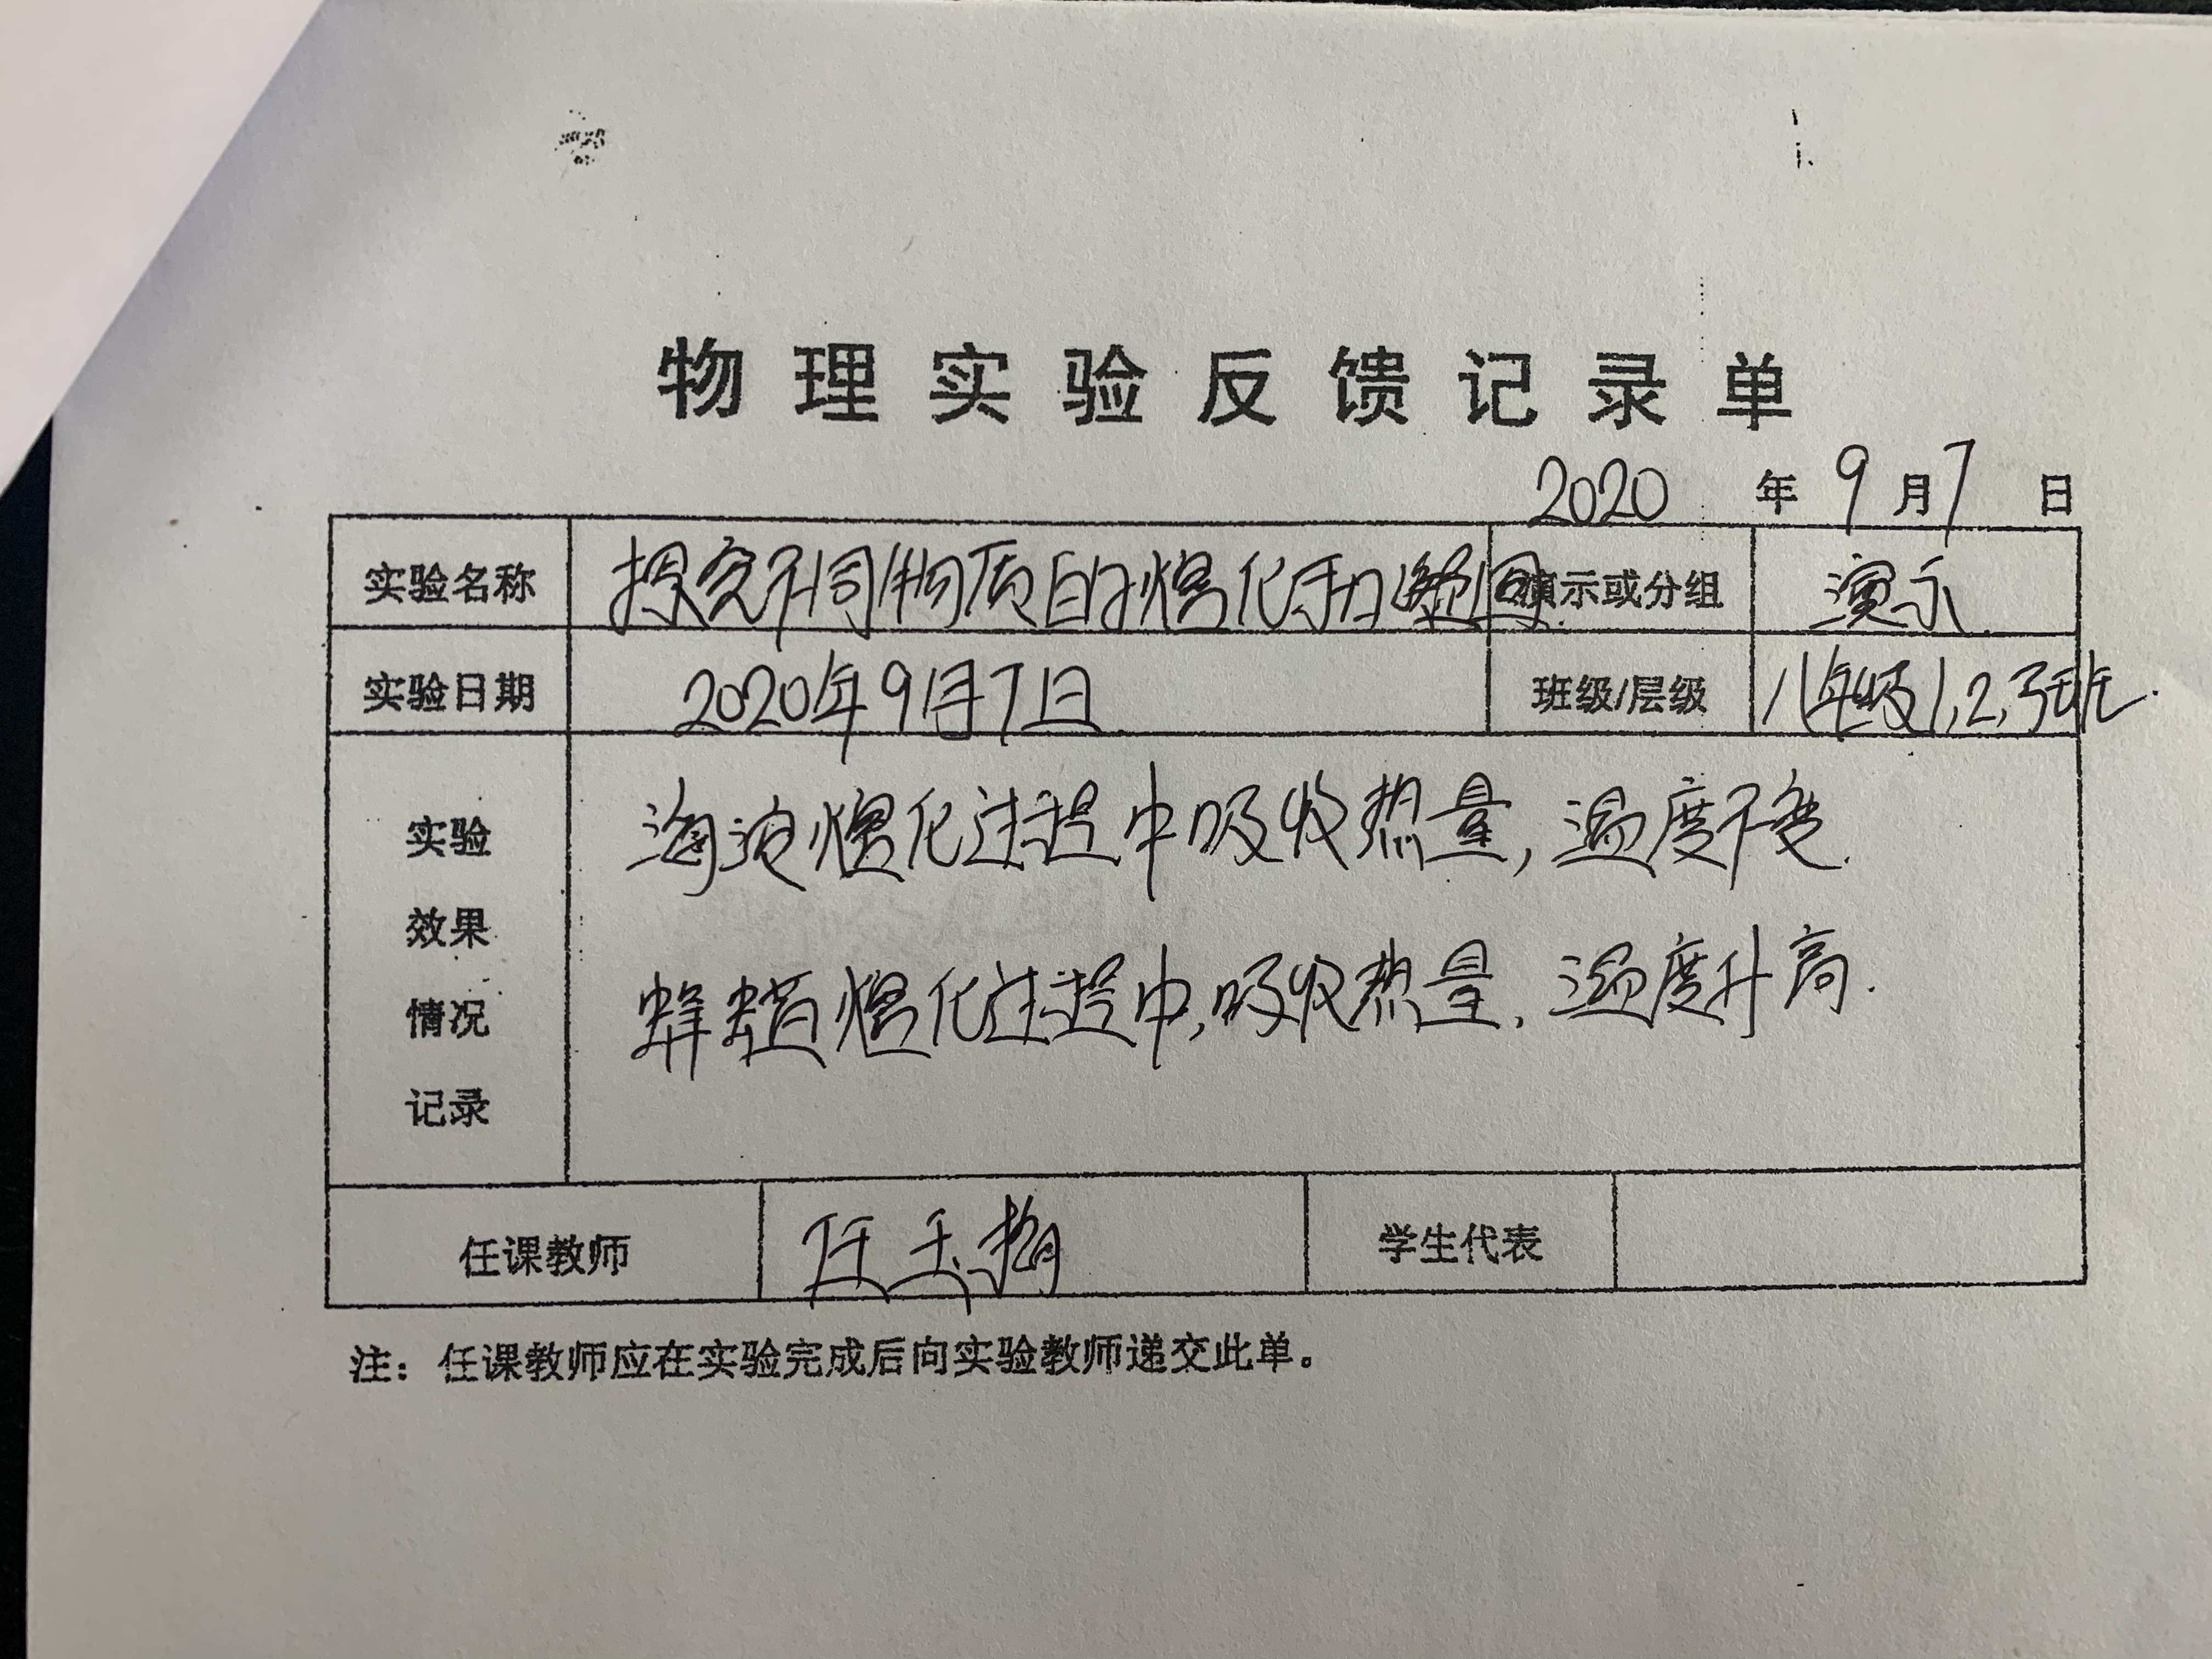 物理实验反馈记录单
2020年9月7日
实验名称 探究不同物质的熔化和凝固. 演示或分组 演示.
实验日期 2020年9月7日 班级/层级 八年级1,2,3班.
实验效果情况记录
海波熔化过程中吸收热量,温度不变.
蜂蜡熔化过程中,吸收热量,温度升高.
任课教师 任玉 学生代表
注：任课教师应在实验完成后向实验教师递交此单。